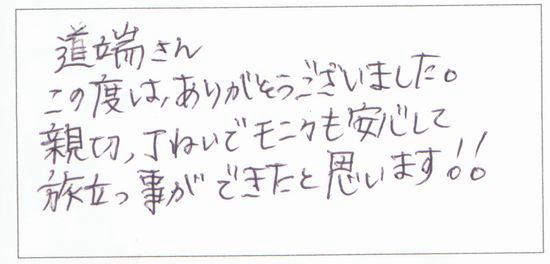 道端さん
この度は、ありがとうございました。
親切、丁ねいでモニクも安心して
旅立つ事ができたと思います!!